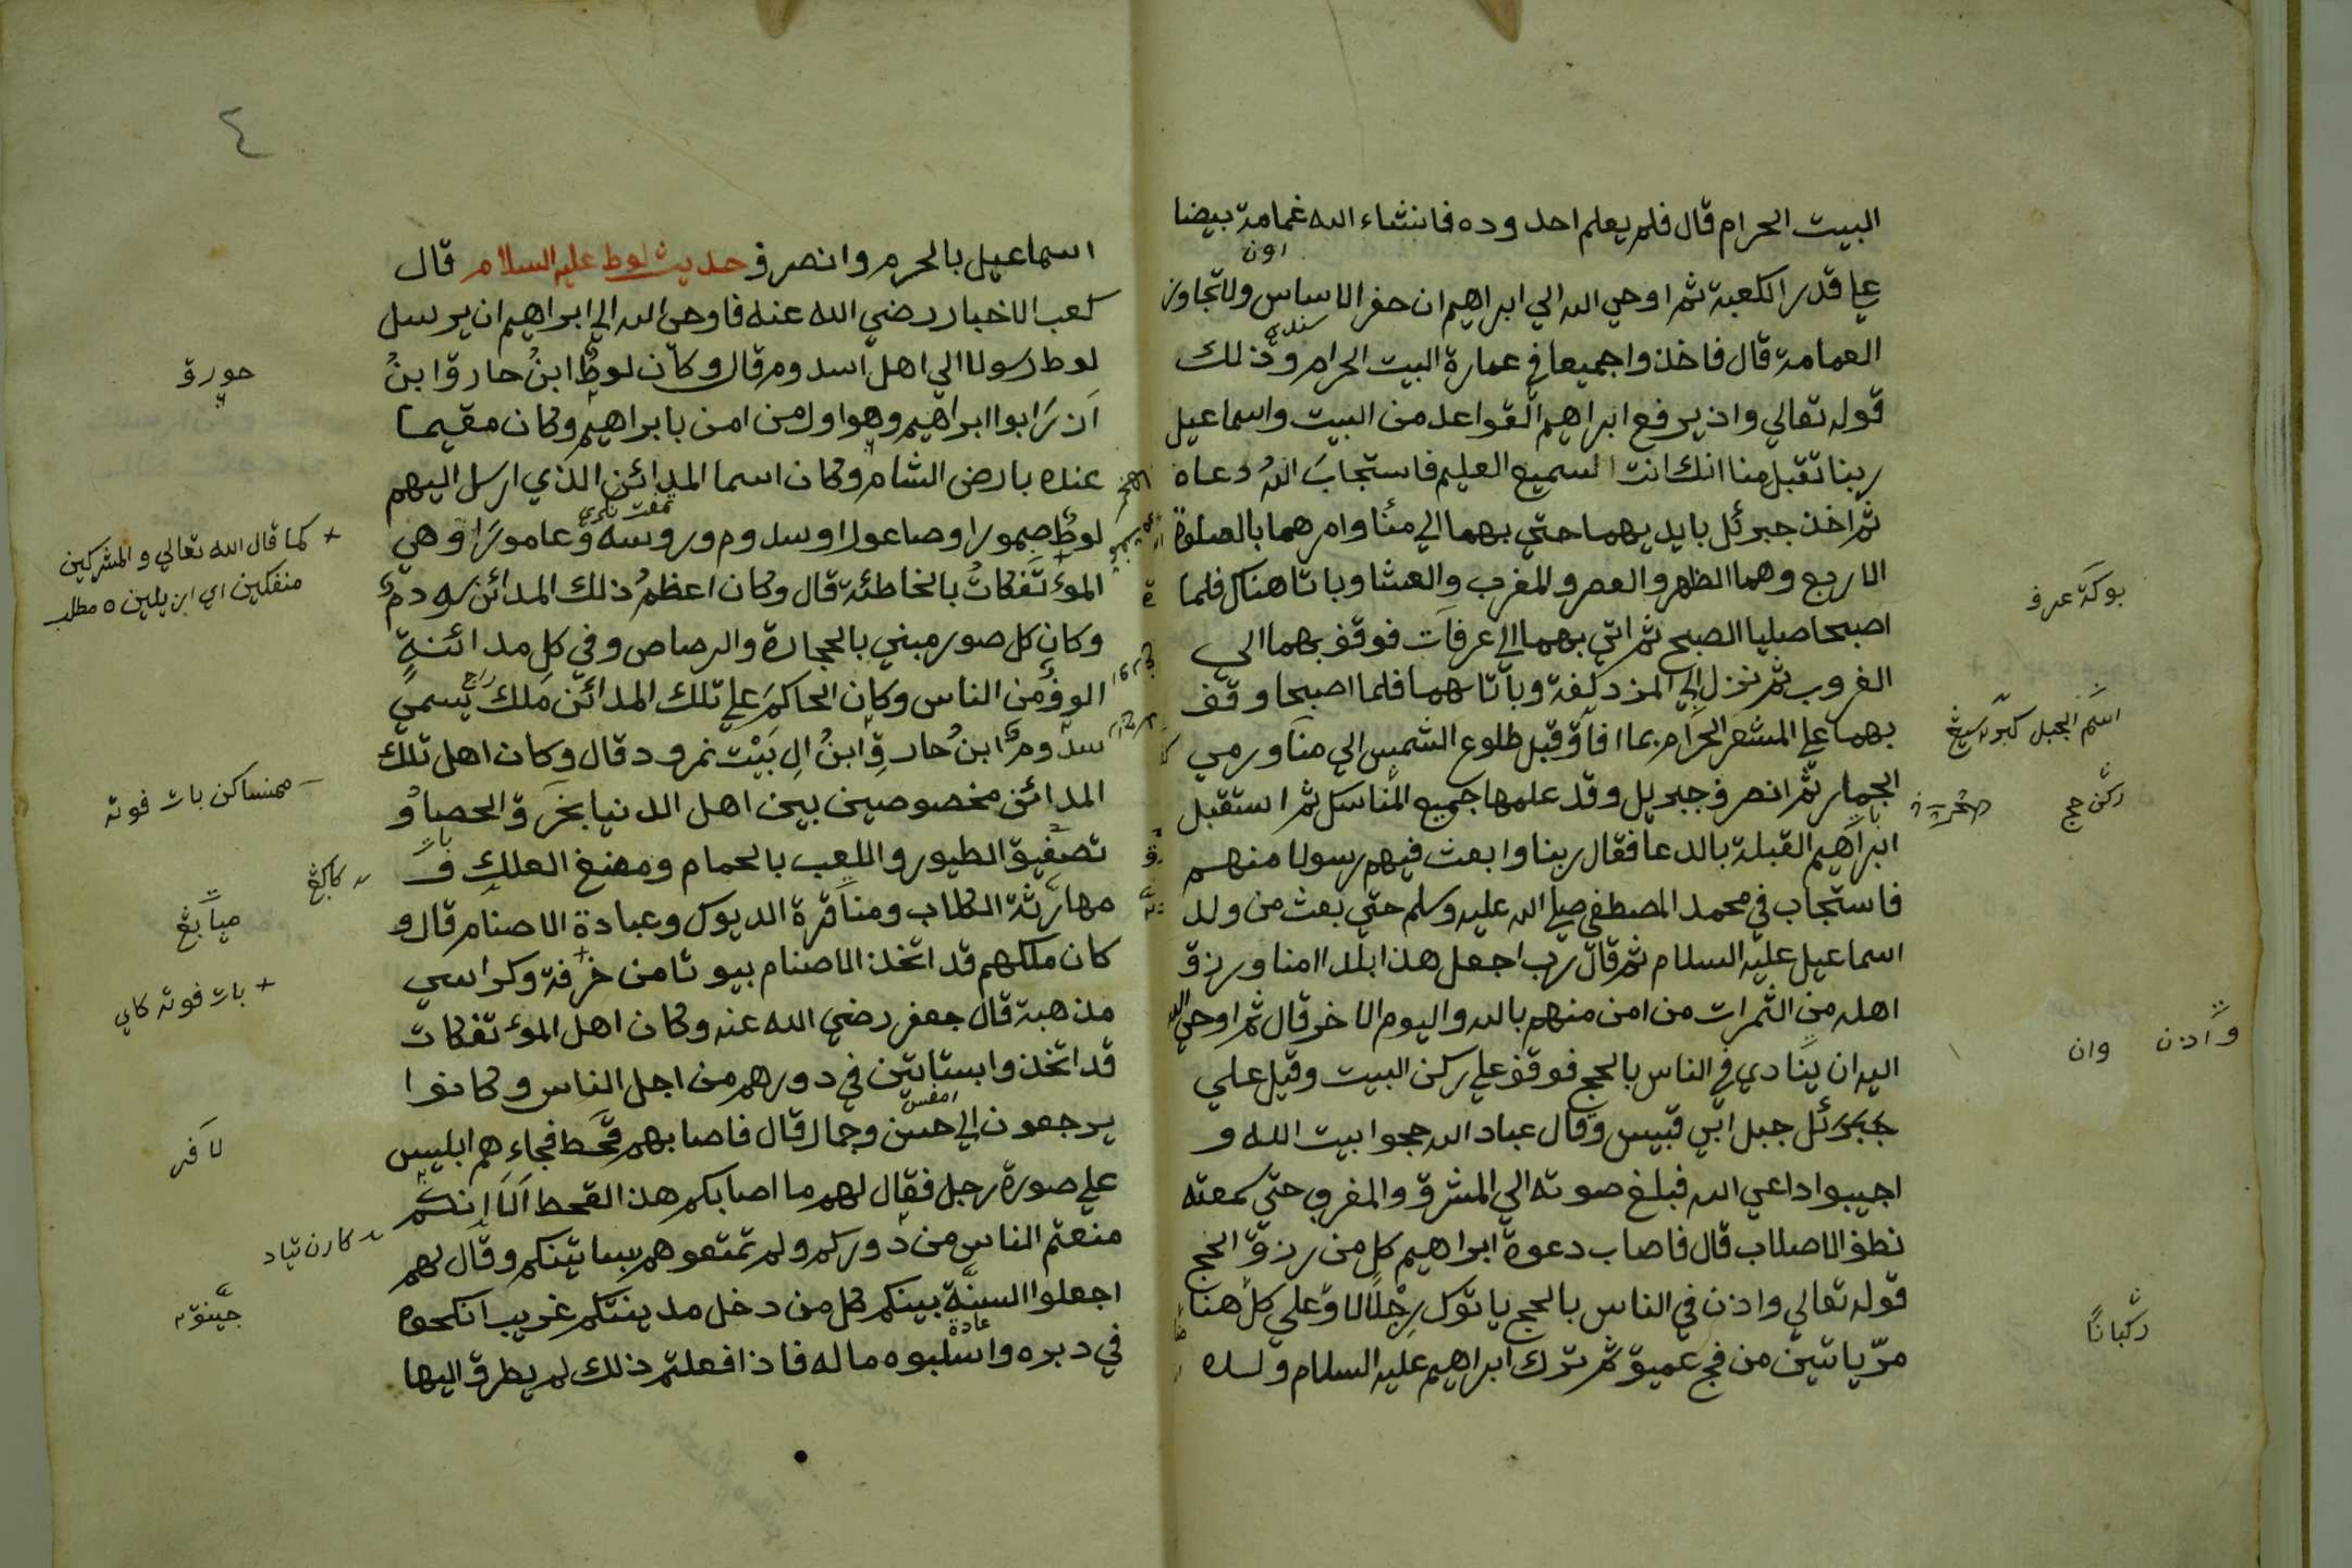 البيت الحرام قال فلم يعلم احد وده فانشاء الله غمامة بيضا
علي قدر الكعبة ثم اوحي الله الي ابراهيم ان حفر الاساس ولا تجاوز
الغمامة قال فاخذوا جميعا في عمارة البيت الحرام وذلك
قوله تعالي واذ يرفع ابراهيم القواعد من البيت واسماعيل
ربنا تقبل منا انك انت السميع العليم فاستجاب الله دعاه
ثم اخذ جبرئل بايديهما حتي بهما الي منًا وامرهما بالصلوة
الاربع وهما الظهر والعصر والمغرب والعشا وباتا هناك فلما
اصبحا صليا الصبح ثم اتي بهما الي عرفات فوقف بهما الي
الغروب ثم نزل الي المزدلفة وباتا بهما فلما اصبحا وقف
بهما علي المشعر الحرام قبل طلوع الشمس الي منا ورمي
الجمار ثم انصرف جبريل وقد علمها جميع المناسك ثم استقبل
ابراهيم القبلة بالدعا فقال ربنا وابعث فيهم رسولا منهم
فاستجاب في محمد المصطفي صلي الله عليه وسلم حتي بعث من ولد
اسماعيل عليه السلام ثم قال رب اجعل هذا بلدا امنا ورزق
اهله من الثمرات من امن منهم بالله واليوم الاخر قال ثم اوحي الله
اليه ان ينادي في الناس بالحج فوقف علي ركن البيت وقيل علي
جبرئل جبل ابي قبيس وقال عباد الله حجوا بيت الله و
اجيبوا داعي الله فبلغ صوته الي المشرق والمغرب حتي سمعته
نطف الاصلاب قال فاصاب دعوة ابراهيم كل من رزق الحج
قوله تعالي واذن في الناس بالحج ياتوك رجالا وعلي كل ضا
مرّ ياتين من فج عميق ثم ترك ابراهيم عليه السلام ولده
بوكة عرف
اسم الجبل
ركن حج
وأذن وان
ركبانًا
٤
اسماعيل بالحرم وانصرف حديث لوط عليه السلام قال
كعب الاخبار رضي الله عنه فاوحي الله الي ابراهيم ان يرسل
لوط رسولا الي اهل سدوم قال وكان لوطٌ ابنُ حارق ابنُ
ازرَ ابوا ابراهيم وهو اول من امن بابراهيم وكان مقيما
عنده بارض الشام وكان اسما المدائن الذي ارسل اليهم
لوطٌ صمورا وصاعورا وسدوم وروسه وعامورَا وهي
المؤتفكاتُ بالخاطئة قال وكان اعظمُ ذلك المدائن سدومٌ
وكان كل صور مبني بالحجارة والرصاص وفي كل مدائنةٍ
الوفٌ من الناس وكان الحاكمَ علي تلك المدائن مَلكٌ يسمي
سدومٌ ابنُ حارقِ ابنُ الِ بَيْت نمرود قال وكان اهل تلك
المدائن مخصوصين بين اهل الدنيا بخرق الحصا و
تصفيق الطيور واللعب بالحمام ومضغ العلك و
مهارَثة الكلاب ومناقرة الديوك وعبادة الاصنام قال و
كان ملكهم قد اتخذ الاصنام بيوتا من خرفة وكراسي
مذهبة قال جعفر رضي الله عنه وكان اهل المؤتفكات
قد اتخذوا بساتين في دورهم من اجل الناس وكانوا
يرجعون الي حسن وجمال قال فاصابهم قحط فجاءهم ابليس
علي صورة رجل فقال لهم ما اصابكم هذا القحط اَلَا انكم
منعتم الناس من دوركم ولم تمتعوهم بساتينكم وقال لهم
اجعلوا السنَّة بينكم كل من دخل مدينتكم غريب انكحوه
في دبره واسلبوه ماله فاذا فعلتم ذلك لم يطرق اليها
حورق
+ كما قال الله تعالي والمشركين
منفكين اي
بات فوته
+ بات فوته كاي
لافر